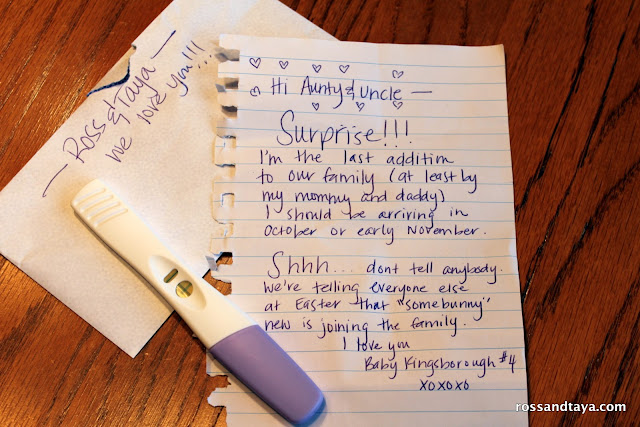 — Ross & Taya —
we love you!!!
Hi Aunty & Uncle —
Surprise!!!
I'm the last addition
to our family (at least by
my mommy and daddy)
I should be arriving in
October or early November.
Shhh... dont tell anybody.
We're telling everyone else
at Easter that "somebunny"
new is joining the family.
I love you
Baby Kingsborough #4
xoxoxo
rossandtaya.com